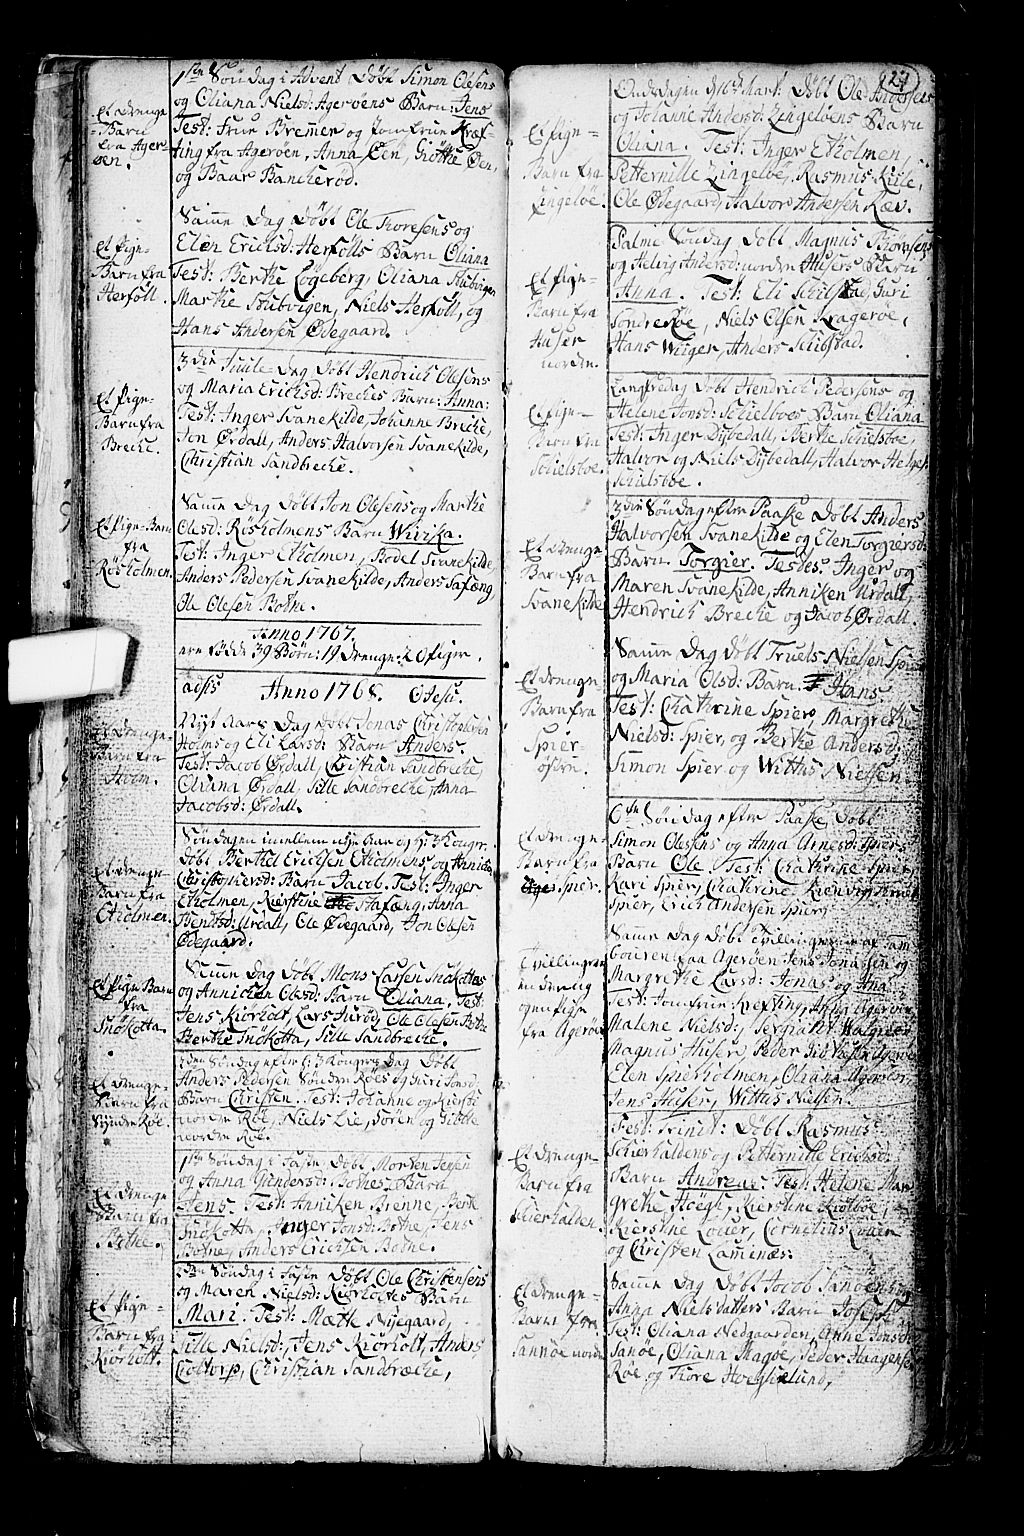 27
et Drenge
-Barn
fra Ager
öen.
1ste Söndag i Advent Döbt Simon Olesens
og Oliana Nielsd: Ageröens Barn: Jens
Test: Frue Bremer og Jomfrue Kræf-
ting fra Ageröen, Anna Öen, Giötke Öen,
og Baar Banckeröd.
Et Pige-
Barn fra
Herföll.
Samme Dag Döbt Ole Thoresens og
Elen Erichsd: Herfölls Barn Oliana
Test: Berthe Lögeberg, Oliana Stubvigen
Marthe Stubvigen, Niels Herföll, og
Hans Andersen Ödegaard.
Et Pige-
Barn fra
Breche.
3die Juule Dag Döbt Hendrich Olesens
og Maria Erichsd: Breches Barn: Anna:
Test: Inger Svanekilde, Johanne Breche,
Jon Ördall, Anders Halvorsen Svanekilde,
Christian Sandbreche.
Et Pige-Barn
fra
Rösholmen.
Samme Dag Döbt Jon Olesens og Marthe
Olesd: Rösholmens Barn Wiirka.
Test: Inger Etholmen, Bodel Svanekilde,
Anders Pedersen Svanekilde, Anders Safæng,
Ole Olesen Bothe.
Anno 1767.
ere Födde 39 Börn: 19 Drenge: 20 Piger.
Anno 1768.
Et Drenge-
Barn fra
Holm.
Nyt Aars Dag Döbt Jonas Christophersen
Holms og Eli Larsd: Barn Anders.
Test: Jacob Ördall, Christian Sandbreche,
Oliana Ördall, Sille Sandbreche, Anna
Jacobsd: Ördall.
Et Drenge-
Barn fra
Etholmen.
Söndagen imellem nyt Aar og H: 3 Konger.
Döbt Berthel Erichsen Etholmens og Anniche
Christophersd: Barn Jacob. Test: Inger
Etholmen, Kierstine Stafæng, Anna
Bendtsd: Urdall, Ole Ödegaard, Jon Olesen
Ödegaard.
Et Pige Barn
fra
Snökotta.
Samme Dag Döbt Mons Larsen Snökottas
og Annichen Olesd: Barn Oliana, Test:
Jens Kiörholt, Lars Buröd, Ole Olesen Bothe
Berthe Snökotta, Sille Sandbreche.
Et Drenge-
Barn fra
Synder Röe.
2den Söndag efter H: 3 Kongers Dag Döbt
Anders Pedersen Sönder Röes og Guri
Barn Christen. Test: Johanne og Kierste
norden Röe, Niels Lie, Sören og Giötke
norden Röe.
Et Drenge
Barn fra
Bothe.
1ste Söndag i Faste Döbt Morten Jensen
og Anna Gundersd: Bothes Barn
Jens. Test: Anniken Brenne, Berte
Snökotta, Inger Jonsd: Bothe, Jens
Bothe, Anders Erichsen Bothe.
Et Pige-
Barn fra
Kiörholt.
2den Söndag i Faste Döbt Ole Christensens
og Maren Nielsd: Kiörholtes Barn
Mari. Test: Mætte Nyegaard,
Sille Nielsd:, Jens Kiörholt, Anders
Croltorp, Christian Sandbræche,
Et Pige-
Barn fra
Lingelöe.
Onsdagen d 16d Mart. Döbt Ole
og Johanne Andersd: Lingelöens Barn
Oliana. Test: Inger Etholmen,
Petternille Lingelöe, Rasmus Kiile,
Ole Ödegaard, Halvor Andersen Ræv.
Et Pige-
Barn fra
Huser
norden.
Palme Söndag Döbt Magnus Thoresens
og Helvig Andersd: norden Husers Barn
Anna. Test: Eli Schibstad, Guri
Sönderöe, Niels Olsen Krageröe,
Hans Wiiger, Anders Schibstad.
Et Pige-
Barn fra
Schielsboe.
Langfredag Döbt Hendrich Pedersens og
Helene Jonsd: Schielboes Barn Oliana
Test: Inger Dybedall, Berthe Schielsboe,
Halvor og Niels Dybedall, Halvor Helges.
Schielsboe.
Et Drenge
Barn fra
Svanekilde
3die Söndag efter Paaske Döbt Anders
Halvorsen Svanekilde og Elen Torgiersd:
Barn Torgier. Testes: Inger og
Maren Svanekilde, Anniken Urdall,
Hendrich Breche og Jacob Ördall.
Et Drenge-
Barn fra
Spier-
östre.
Samme Dag Döbt Truels Nielsen Spier
og Maria Olsd: Barn. Hans
Test: Chathrine Spier, Margrethe
Nielsd: Spier, og Berthe Andersd:
Simon Spier og Wittus Nielsen
Et Drenge-
Barn fra
Spier.
6te Söndag efter Paaske Döbt
Simon Olessens og Anna Arnesd: Spiers
Barn Ole. Test: Chathrine Spier,
Kari Spier, Chathrine Kienvig,
Spier, Erich Andersen Spier.
Tvillinger
en Dreng
og en Pige
fra Ageröe
Samme Dag Döbt Tvillingerne af Tam-
bouren paa Ageröen Jens Jonassen og
Margrethe Larsd: Jonas og Ana
Test: Jomfrue Krefting, Anna Ageröen
Malene Nielsd:, Sergiant Walgreen
Magnus Huser, Peder Ageröe
Elen Spierholmen, Oliana Ageröen,
Jens Huser, Wittus Nielsen.
Et Drenge-
Barn fra
Skierhalden.
Fest: Trinit: Döbt Rasmus
Schierhaldens og Petternille Erichsd:
Barn Andreas. Test: Helene Mar
grethe Höegh, Kierstine Kiölboe,
Kierstine Louer, Cornelius Louer
og Christen Laminæs.
Et Drenge-
Barn fra
Sanöe norde
Samme Dag Döbt Jacob Sanöens og
Anna Nielsdatters Barn Joseph
Test: Oliana Nedgaarden, Anne Jonsd:
Sanöe, Oliana Magöe, Peder Haagensen
Röe og Thore Hoeglielund,